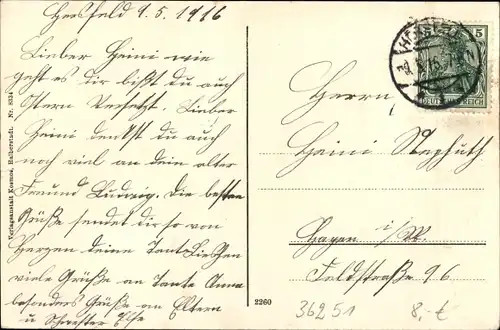 Hersfeld 9.5.1916
Lieber Heini wie
geht es dir bist du auch
Ostern Versetzt. Lieber
Heini denkst du auch
noch viel an dein alter
Freund Ludwig. Die besten
Grüße sendet dir so von
Herzen deine Tante Lieschen
viele Grüße an Tante Anna
besonders Grüße an Eltern
u Schwester Else
Verlagsanstalt Kosmos, Halberstadt. Nr. 8334
2260
5
DEUTSCHES REICH
Herrn
Heini
Hagen i/W.
Feldstraße 96
36251
8,-€